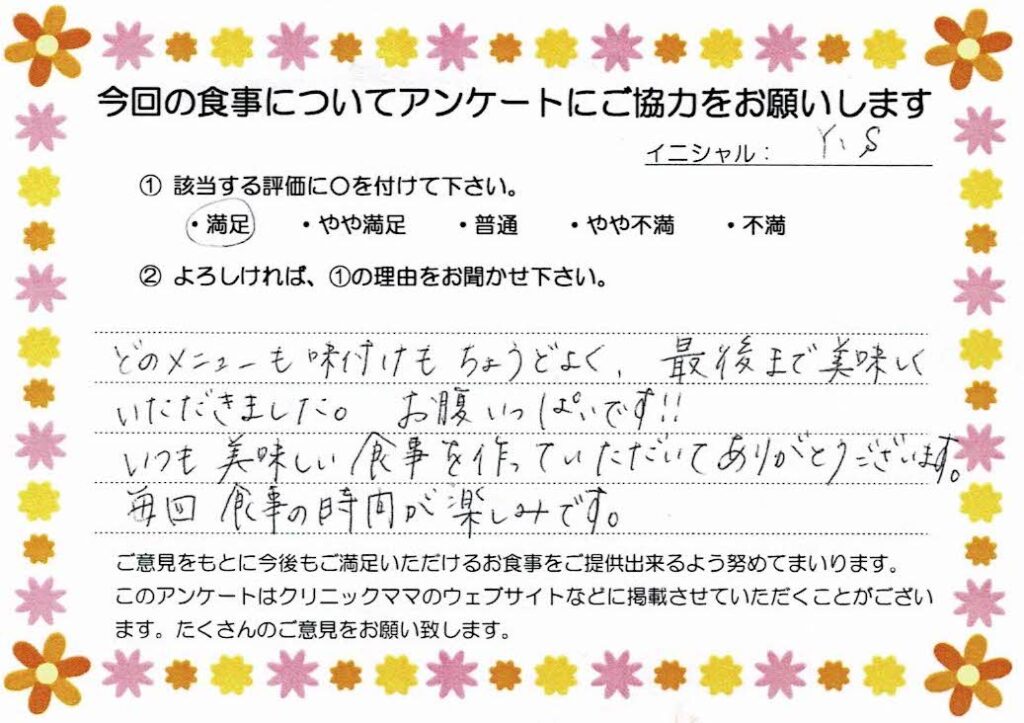 今回の食事についてアンケートにご協力をお願いします
イニシャル： Y、S
① 該当する評価に〇を付けて下さい。
・満足 ・やや満足 ・普通 ・やや不満 ・不満
② よろしければ、①の理由をお聞かせ下さい。
どのメニューも味付けもちょうどよく、最後まで美味しく
いただきました。 お腹いっぱいです!!
いつも美味しい食事を作っていただいてありがとうございます。
毎回食事の時間が楽しみです。
ご意見をもとに今後もご満足いただけるお食事をご提供出来るよう努めてまいります。
このアンケートはクリニックママのウェブサイトなどに掲載させていただくことがござい
ます。たくさんのご意見をお願い致します。